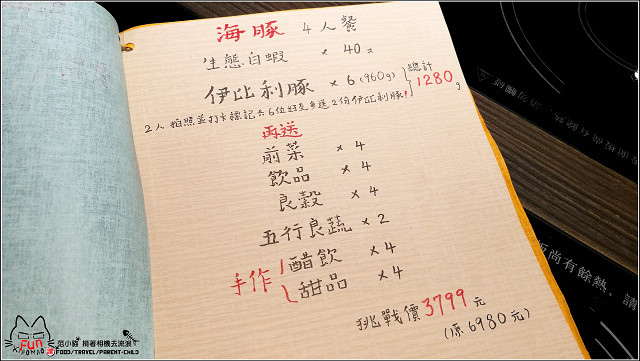 海豚 4人餐
生態白蝦 × 40隻
伊比利豚 × 6 (960g) 總計 1280g
2人拍照並打卡標記共6位好友再送2份伊比利豚!
再送
前菜 × 4
飲品 × 4
良穀 × 4
五行良蔬 × 2
手作 醋飲 × 4
甜品 × 4
挑戰價 3799 元
(原 6980 元)
板尚有餘熱、請
FUN
XIAOMAO
范小貓 揹著相機去流浪
FOOD/TRAVEL/PARENT-CHILD